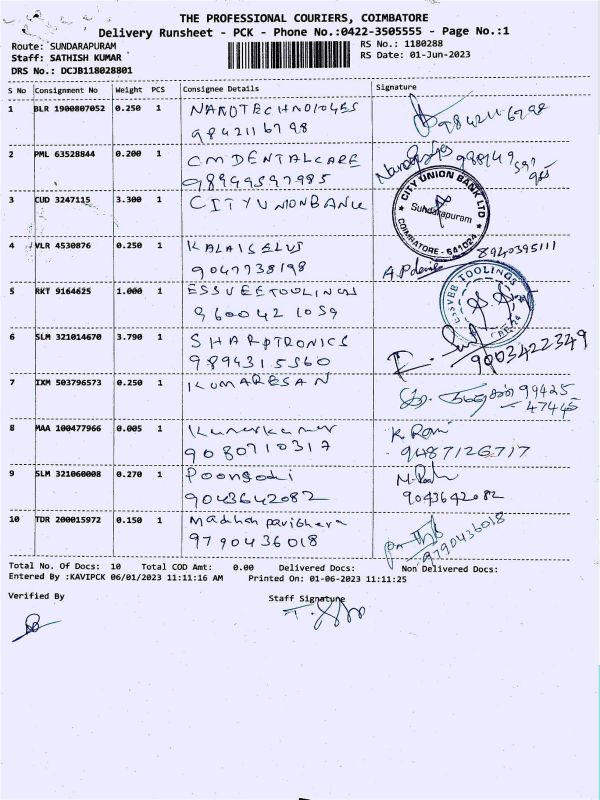 THE PROFESSIONAL COURIERS, COIMBATORE
Delivery Runsheet - PCK - Phone No.:0422-3505555 - Page No.:1
Route: SUNDARAPURAM
RS No.: 1180288
Staff: SATHISH KUMAR
RS Date: 01-Jun-2023
DRS No.: DCJB118028801
S No Consignment No Weight PCS Consignee Details Signature
1 BLR 1900807052 0.250 1 NANOTECHNOLOGIES
9842116798 9842116798
2 PML 63528844 0.200 1 CMDENTALCARE
98949597985
3 CUD 3247115 3.300 1 CITYUNIONBANK
CITY UNION BANK LTD
Sundarapuram
COIMBATORE - 641024
4 VLR 4530876 0.250 1 KALAISELVI 8940395111
9047738198
5 RKT 9164625 1.000 1 ESSVEETOOLINGS
ESSVEE TOOLINGS
9600421059
6 SLM 321014670 3.790 1 SHARPTRONICS
9894315560 9003422349
7 IXM 503796573 0.250 1 KUMARESAN 99425
47445
8 MAA 100477966 0.005 1 K Rani
9080710317 9487126717
9 SLM 321060008 0.270 1 Poongodi
9043642082 9043642082
10 TDR 200015972 0.150 1
9790436018 9790436018
Total No. Of Docs: 10 Total COD Amt: 0.00 Delivered Docs: Non Delivered Docs:
Entered By :KAVIPCK 06/01/2023 11:11:16 AM Printed On: 01-06-2023 11:11:25
Verified By Staff Signature